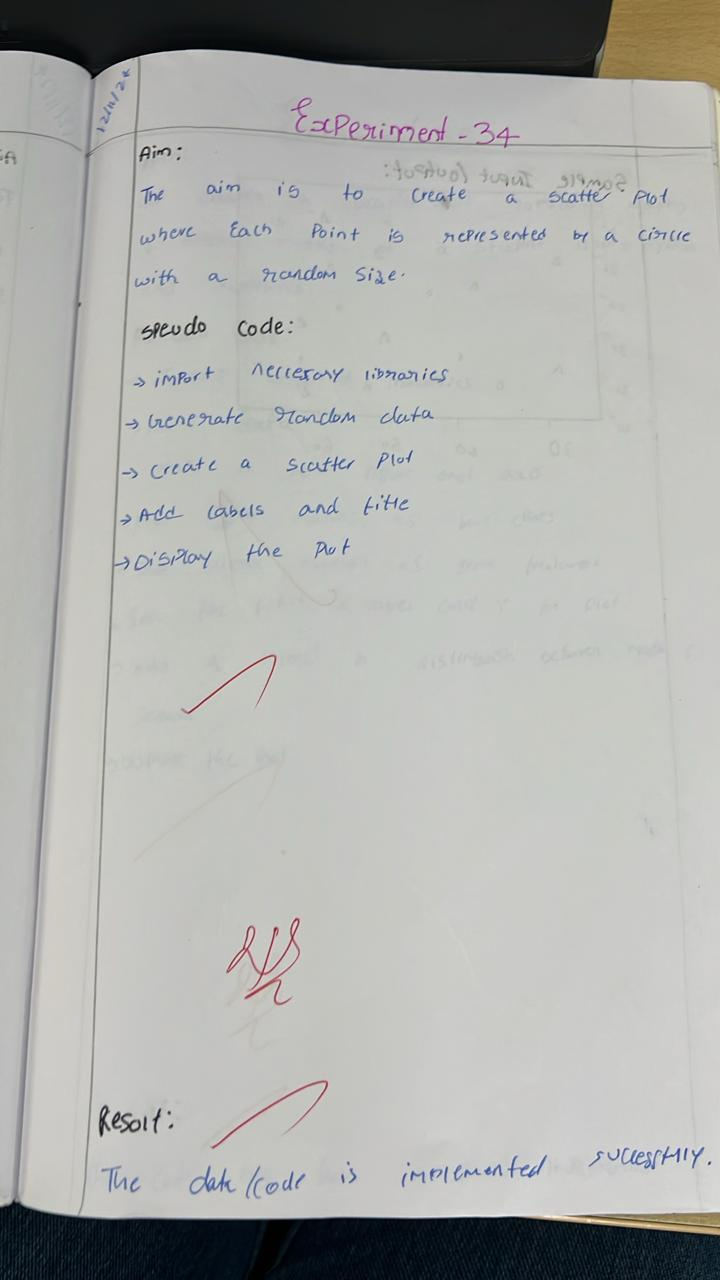 12/11/24
Experiment - 34
Aim:
The aim is to create a scatter plot
where Each Point is represented by a circle
with a random size.
speudo code:
→ import neccesary libraries
→ Generate random data
→ create a scatter plot
→ Add labels and title
→ Display the plot
Result:
The data/code is implemented successfully.